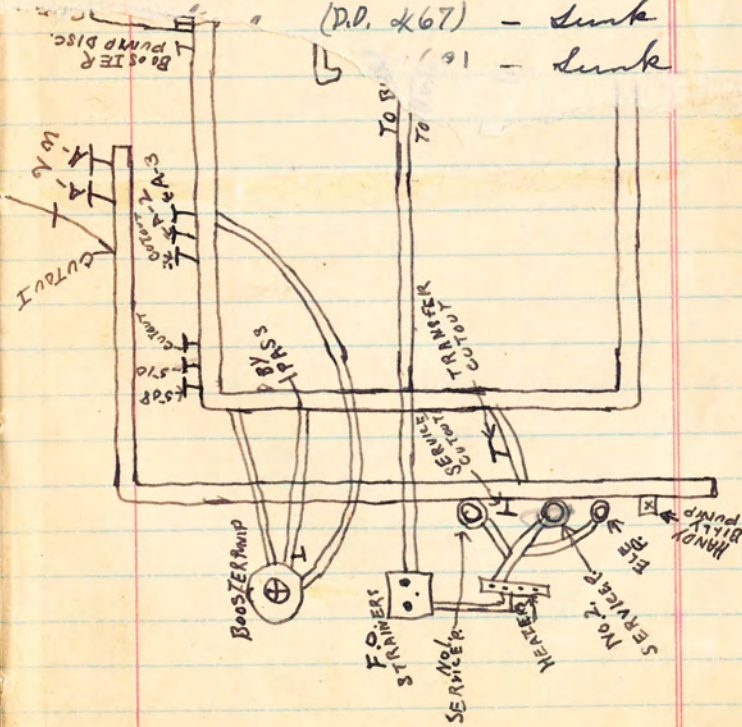 (D.D. #67) - Sunk
- Sunk
BOOSTER
PUMP DISC.
TO
TO
A-3
A-2
CUTOUT
A-2
A-3
CUTOUT
CUTOUT
510
508
BY
PASS
TRANSFER
CUTOUT
SERVICE
CUTOUT
BOOSTER PUMP
F.O.
STRAINERS
NO.1
SERVICE P.
HEATER
NO.2
SERVICE P.
ELE P.
HANDY
BILLY
PUMP